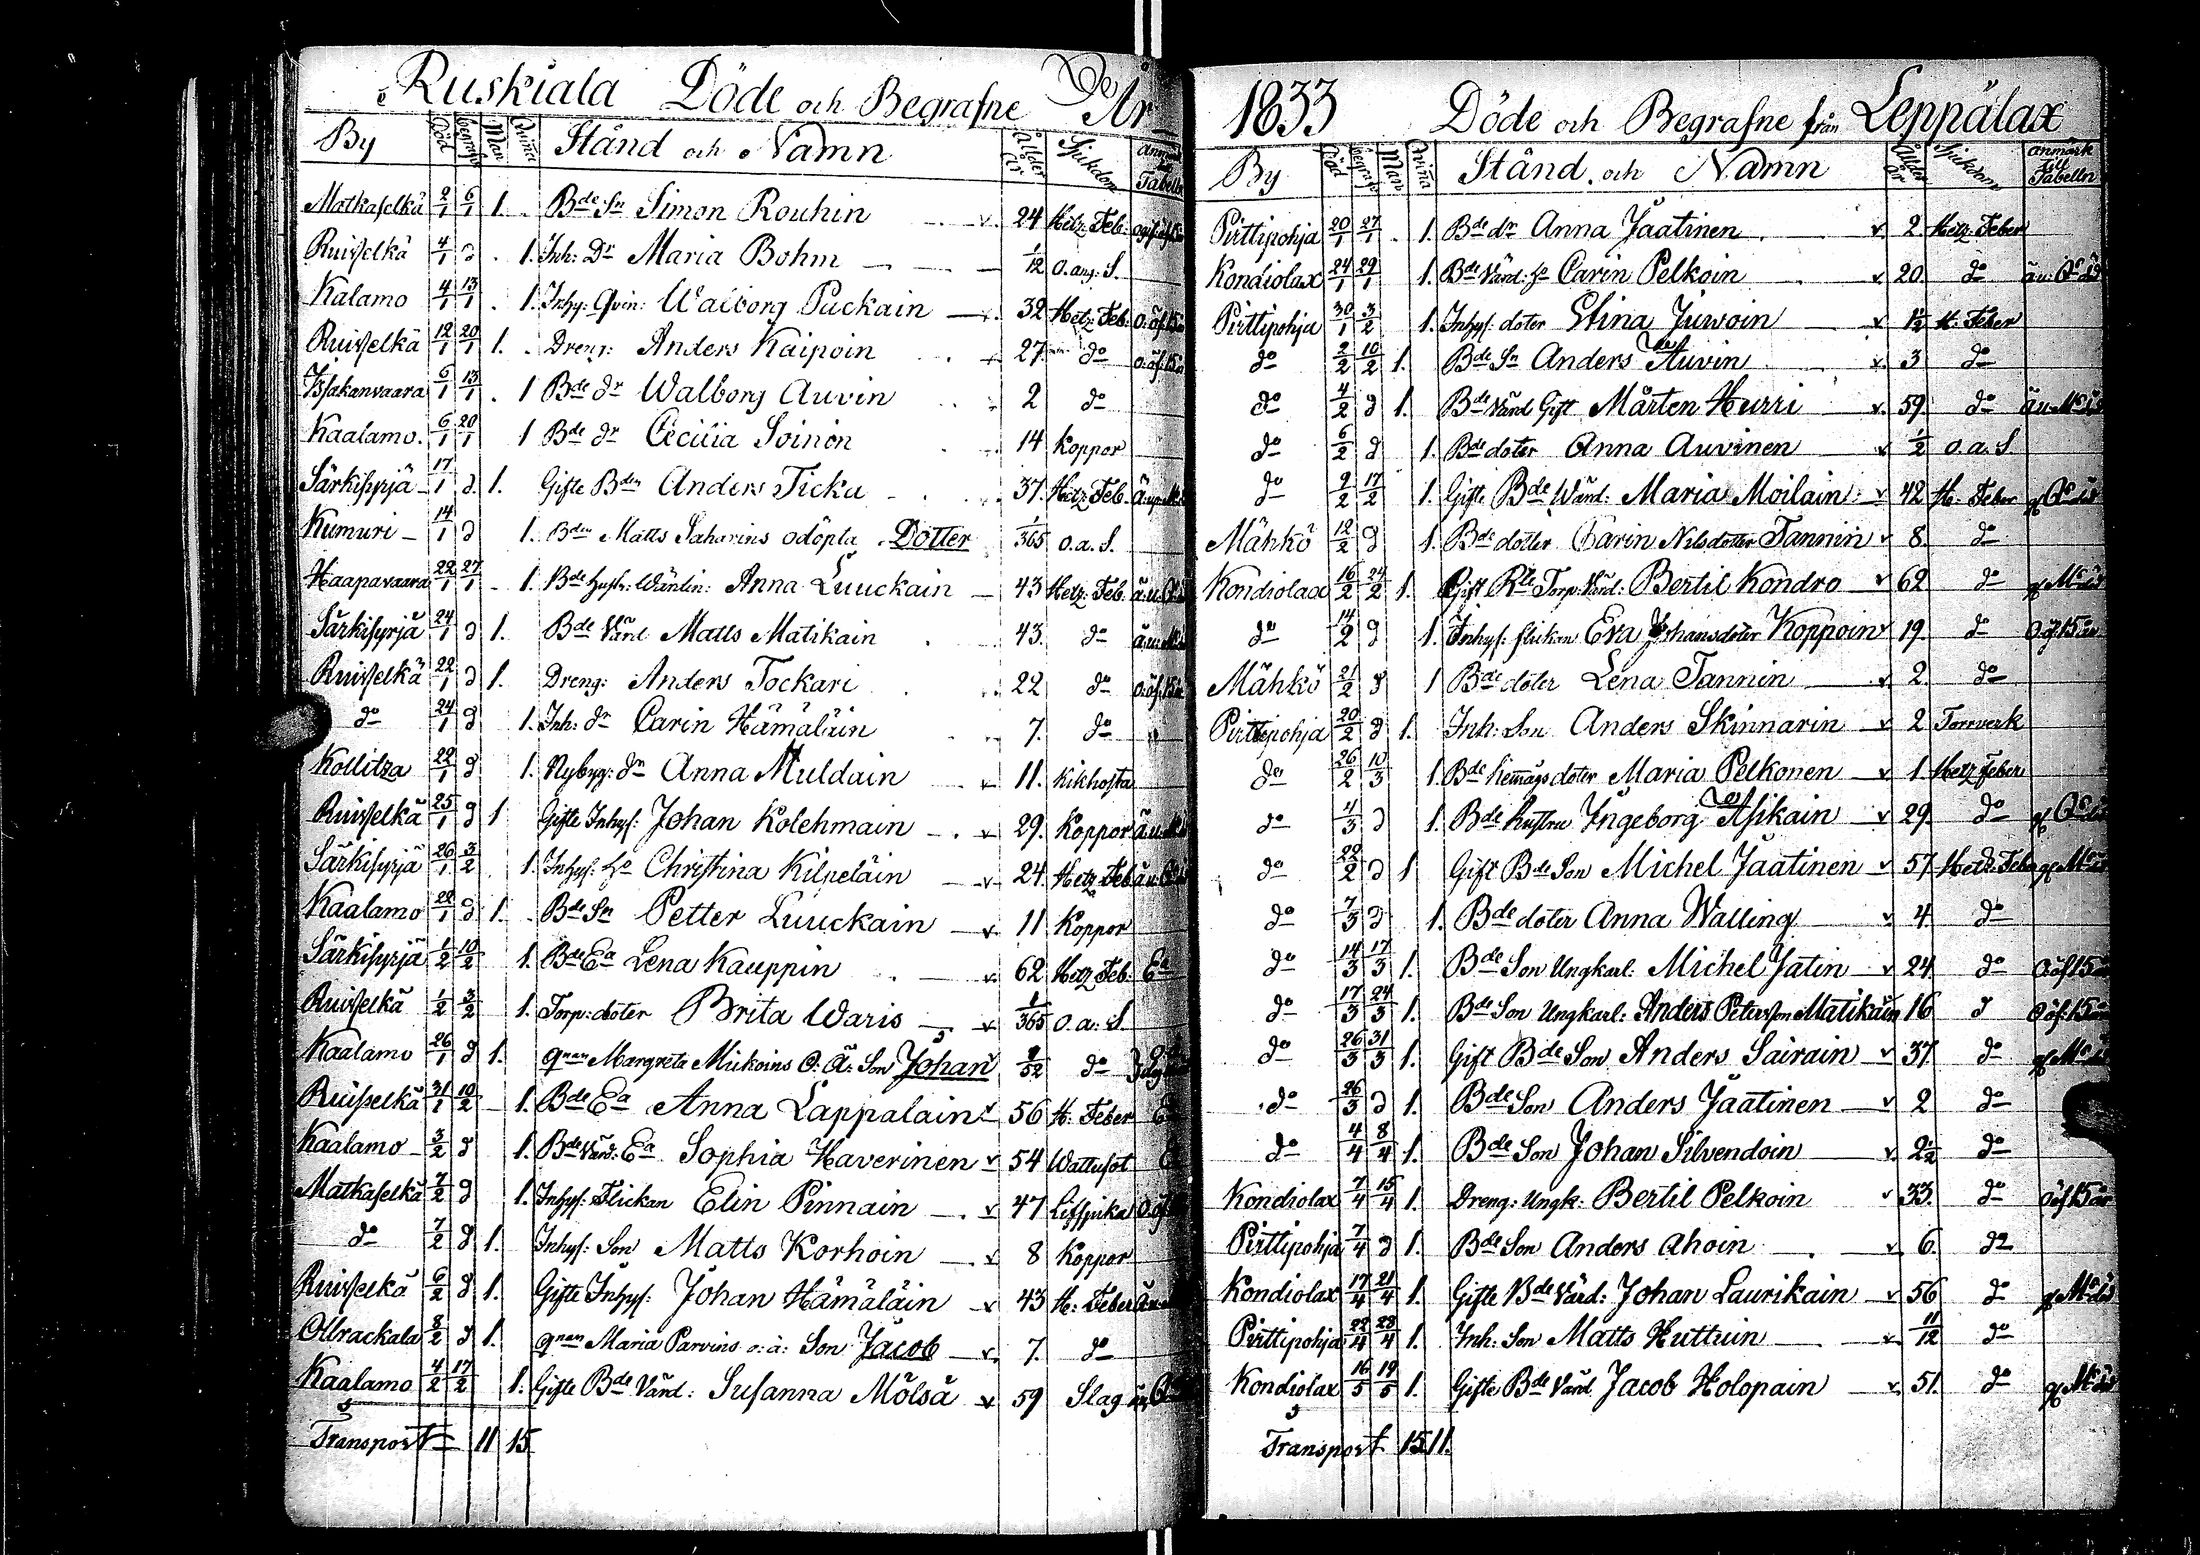 Ruskiala Döde och Begrafne År
By Död begrafn Man Qvina Stånd och Namn Ålder år Sjukdom
Matkaselkä 2/1 6/1 1. Bde Sn Simon Rouhin v. 24 Hetz. Feb.
Ruisselkä 4/1 d 1. Inh: Dr Maria Bohm 1/12 o. ang: S.
Kalamo 4/1 13/1 1. Inhy: Qvin: Walborg Puckain 32 Hetz. Feb.
Ruisselkä 12/1 20/1 1. Dreng: Anders Kaipoin 27 do
Issakanvaara 6/1 13/1 1 Bde dr Walborg Auvin 2 do
Kaalamo. 6/1 20/1 1 Bde dr Cecilia Soinin 14 Koppor
Särkisyrjä 17/1 d 1. Gifte Bden Anders Ticka 37 Hetz. Feb.
Kumuri 14/1 d 1. Bden Matts Saharins odöpta Dotter 1/365 o.a.S.
Haapavaara 22/1 27/1 1. Bde hustr: Wärdin: Anna Luuckain 43 Hetz: Feb.
Särkisyrjä 24/1 d 1. Bde Värd Matts Matikain 43. do
Ruisselkä 22/1 d 1. Dreng: Anders Tockari 22 do
do 24/1 d 1. Inh: dr Carin Hämäläin 7. do
Kollitza 22/1 d 1. Nybyg: dr Anna Muldain v 11. Kikhosta
Ruisselkä 25/1 d 1 Gifte Inhys: Johan Kolehmain v 29. Koppor
Särkisyrjä 26/1 3/2 1. Inhys: Christina Kilpeläin v 24 Hetz Feb
Kaalamo 28/1 d 1. Bde Sn Petter Luuckain v. 11 Koppor
Särkisyrjä 1/2 10/2 1. Bde Ea Lena Kauppin v. 62 Hetz Feb. Ea
Ruisselkä 1/2 3/2 1. Torp: doter Brita Waris v. 1/365 o.a.S.
Kaalamo 26/1 d 1. qnan Margreta Mickoins O: Ä: Son Johan do
Ruisselkä 31/1 10/2 1. Bde Ea Anna Lappalain v 56 H. Feber
Kaalamo 3/2 d 1. Bde Värd: Ea Sophia Haverinen v 54 Wattusot
Matkaselkä 7/2 d 1. Inhys: Flickan Elin Pinnain v 47
do 7/2 d 1. Inhys: Son Matts Korhoin v 8 Koppor
Ruisselkä 6/2 d 1. Gifte Inhys: Johan Hämäläin v 43 H: Feber
Ollrackala 8/2 d 1. qnan Maria Parvins o: ä: Son Jacob v. 7. do
Kaalamo 4/2 17/2 1. Gifte Bde Värd: Susanna Mölsä v 59 Slag
Transport 11 15
1833 Döde och Begrafne från Leppälax
By Död begrafn Man Qvina Stånd och Namn Ålder år Sjukdom anmärk till Tabellen
Pirttipohja 20/1 27/1 1. Bde dr Anna Jäatinen v. 2. Hetz Feber
Kondiolax 24/1 29/1 1. Bde Värd: Carin Pelkoin v 20. do
Pirttipohja 30/1 3/2 1. Inhys: doter Stina Juwoin v 1 1/2 H: Feber
do 2/2 10/2 1. Bde Sn Anders Auvin v. 3 do
do 4/2 d 1. Bde Värd Gift Mårten Hurri v. 59. do
do 6/2 d 1. Bde doter Anna Auvinen v 1/2 o.a.S
do 9/2 17/2 1. Gifte Bde Wärd: Maria Moilain v 42 H: Feber
Mähkö 12/2 d 1. Bde dotter Carin Nilsdotter Tannin v 8. do
Kondiolax 16/2 24/2 1. Gift Torp: Värd: Bertil Kondro v 62 do
do 14/2 d 1. Inhys: flickan Eva Johansdoter Koppoin v 19. do
Mähkö 21/2 d 1 Bde doter Lena Tannin v 2. do
Pirttipohja 20/2 d 1. Inh: Son Anders Skinnarin v 2 Torrverk
do 26/2 10/3 1. Bde hemågs doter Maria Pelkonen v 1. Hetz feber
do 4/3 d 1. Bde hustru Ingeborg Asikain v 29. do
do 22/2 d 1 Gift Bde Son Michel Jäatinen v 57 Hetz: Feber
do 7/3 d 1. Bde doter Anna Walling v 4. do
do 14/3 17/3 1. Bde Son Ungkarl: Michel Jatin v 24 do
do 17/3 24/3 1. Bde Son Ungkarl: Anders Petersson Matikain 16 d
do 26/3 31/3 1. Gift Bde Son Anders Sairain v 37. do
do 26/3 d 1. Bde Son Anders Jäatinen v 2 do
do 4/4 8/4 1. Bde Son Johan Silvendoin v. 2 1/2 do
Kondiolax 7/4 15/4 1. Dreng: Ungk: Bertil Pelkoin v 33. do
Pirttipohja 7/4 d 1. Bde Son Anders Ahoin v. 6. do
Kondiolax 17/4 21/4 1. Gifte Bde Värd: Johan Laurikain v 56 do
Pirttipohja 22/4 28/4 1. Inh: Son Matts Huttuin v. 11/12 do
Kondiolax 16/5 19/5 1. Gifte Bde Värd. Jacob Holopain v. 51. do
Transport 15 11.